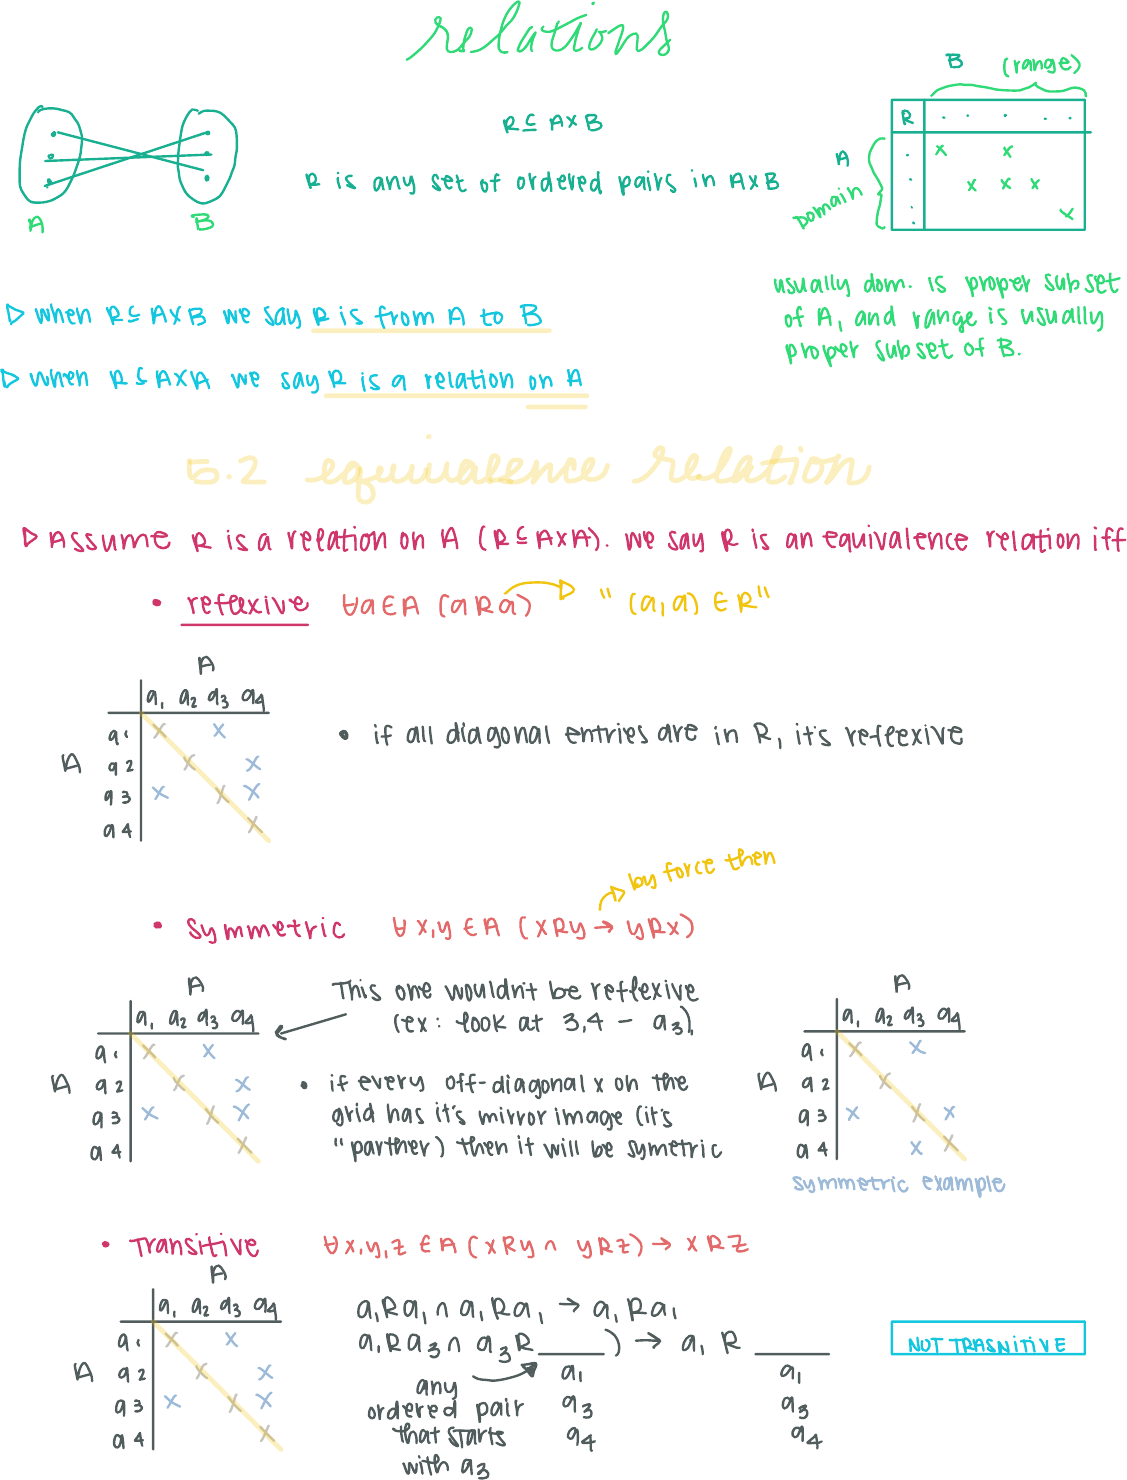 relations
B (range)
R ⊆ A×B
R is any set of ordered pairs in A×B
R
A
Domain
A B
usually dom. is proper subset
of A, and range is usually
proper subset of B.
▷ when R ⊆ A×B we say R is from A to B
▷ when R ⊆ A×A we say R is a relation on A
5.2 equivalence relation
▷ Assume R is a relation on A (R ⊆ A×A). we say R is an equivalence relation iff
• reflexive ∀a∈A (aRa) "(a,a) ∈ R"
A
a₁ a₂ a₃ a₄
a₁ x x
A a2 x x
a3 x x x
a4 x
• if all diagonal entries are in R, it's reflexive
by force then
• Symmetric ∀x,y ∈ A (xRy → yRx)
A
a₁ a₂ a₃ a₄
a₁ x x
A a2 x x
a3 x x x
a4 x
This one wouldn't be reflexive
(ex: look at 3,4 - a₃),
• if every off-diagonal x on the
grid has it's mirror image (it's
"parther) then it will be symetric
A
a₁ a₂ a₃ a₄
a₁ x x
A a2 x
a3 x x x
a4 x x
symmetric example
• Transitive ∀x,y,z ∈ A (xRy ∩ yRz) → xRz
A
a₁ a₂ a₃ a₄
a₁ x x
A a2 x x
a3 x x x
a4 x
a₁Ra₁ ∩ a₁Ra₁ → a₁Ra₁
a₁Ra₃ ∩ a₃R____) → a₁ R ____
a₁ a₁
a₃ a₃
a₄ a₄
any
ordered pair
that starts
with a₃
NOT TRASNITIVE